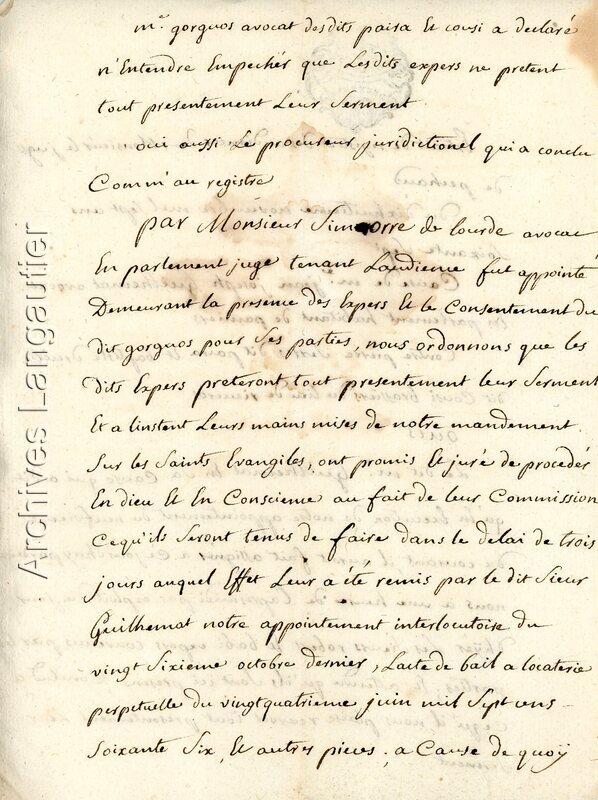 me. gorguos avocat desdits paisa Et cousi a declaré
n'Entendre Empechér que Lesdits expers ne pretent
tout presentement Leur Serment.
oui aussi Le procureur juridictionel qui a conclu
Comm'au registre
par Monsieur Simorre de lourde avocat
En parlement juge tenant Laudience fut appointé
Demeurant la presence des Expers Et le Consentement du
dit gorguos pour Ses parties, nous ordonnons que les
dits Expers preteront tout presentement leur Serment
Et a linstent Leurs mains mises de notre mandement
Sur les Saints Evangiles, ont promis Et juré de procedér
En dieu Et En Conscience au fait de leur Commission
Cequ'ils Seront tenus de faire dans le delai de trois
jours auquel Effet Leur a été remis par le dit Sieur
Guilhemat notre appointement interlocutoire du
vingt Sixieme octobre dernier, Lacte de bail a locaterie
perpetuelle du vingtquatrieme juin mil Sept cens
Soixante Six, Et autres pieces, a Cause de quoÿ
Archives Langautier